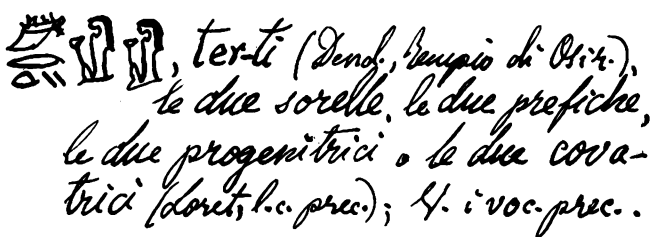 , ter-ti (Dend., Tempio di Osir.),
le due sorelle, le due prefiche,
le due progenitrici o le due cova-
trici (Loret, l.c. prec.); V. i voc. prec..